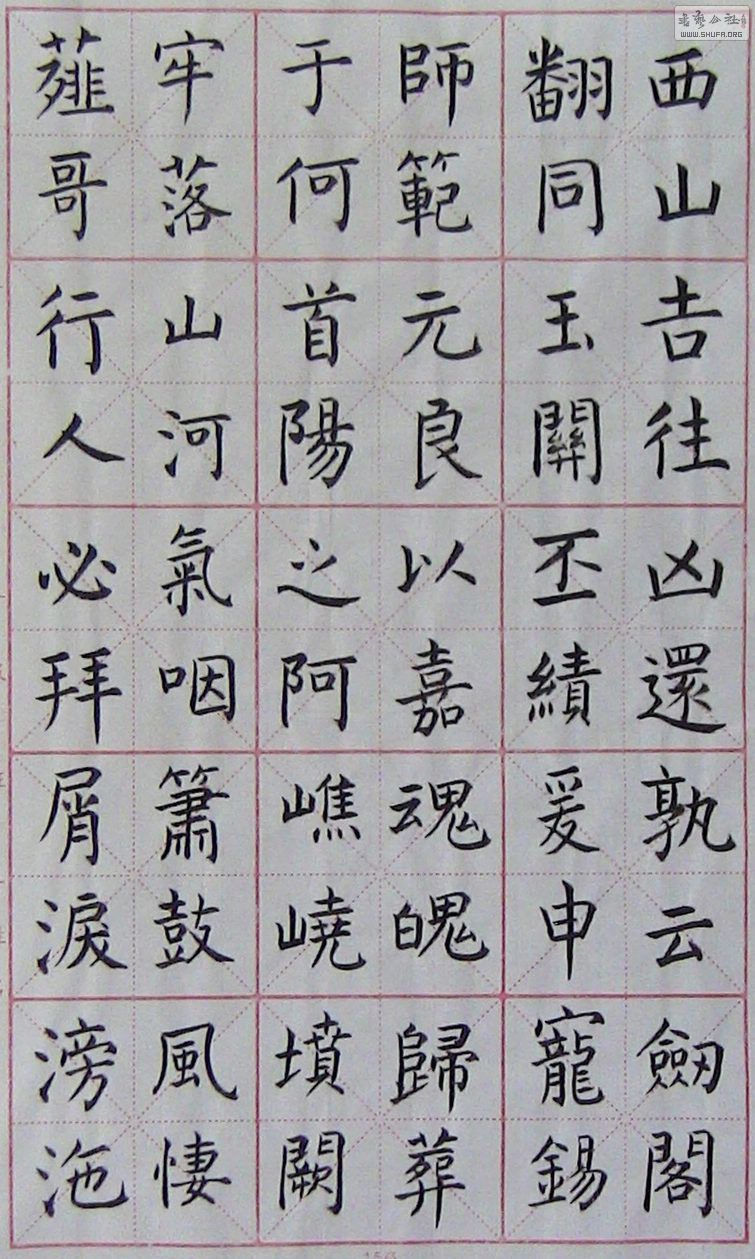 西山吉往凶還孰云劒閣
翻同玉關丕績爰申寵錫
師範元良以嘉魂魄歸葬
于何首陽之阿嶕嶢墳闕
牢落山河氣咽簫鼓風悽
薤哥行人必拜屑淚滂沲
書藝公社
WWW.SHUFA.ORG